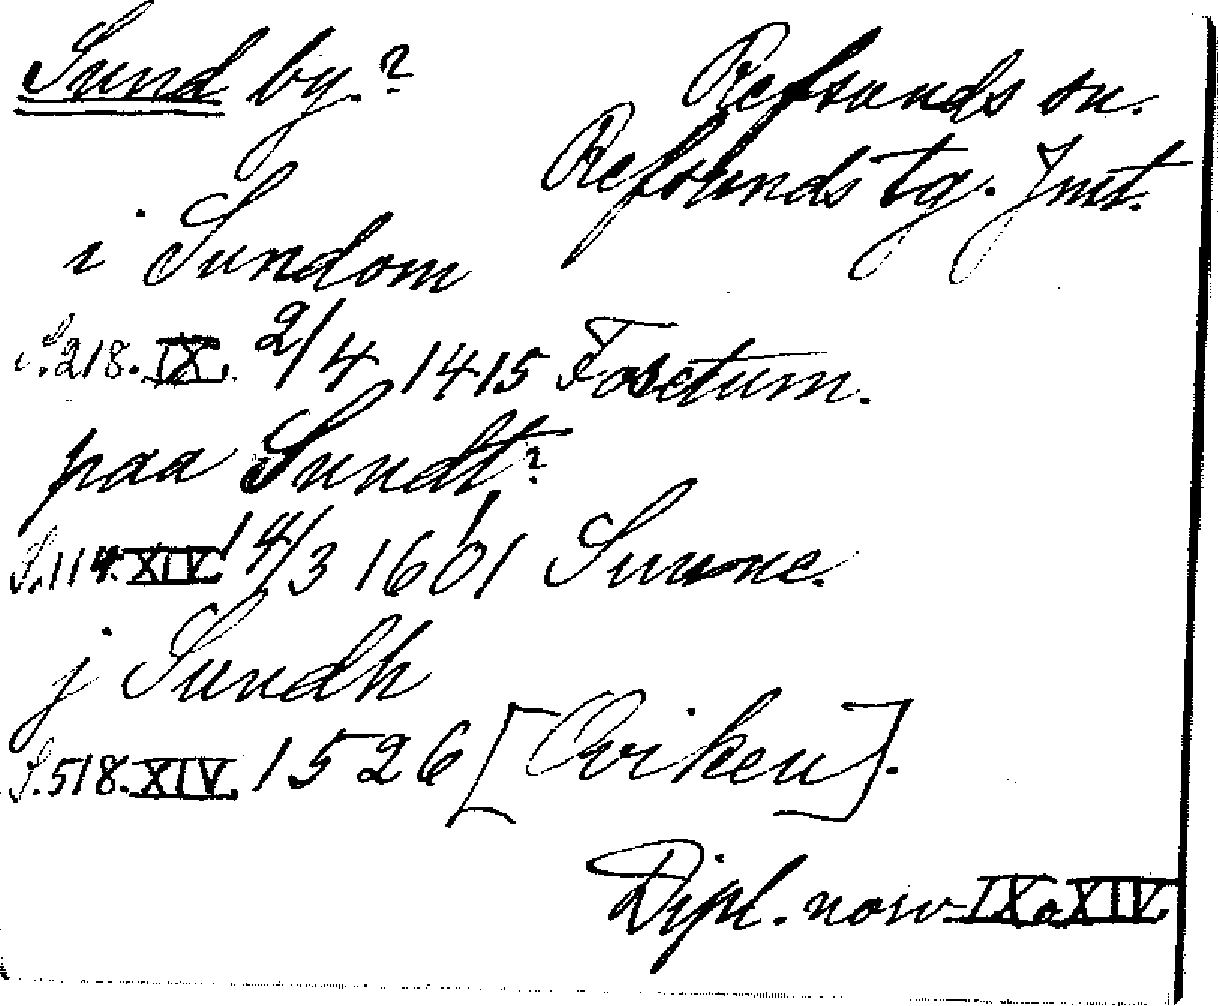 Sund by?
Refsunds sn.
Refsunds tg. Jmt.
i Sundom
S. 218. IX. 2/4 1415 Fosetum.
paa Sundt?
S. 114. XIV. 14/3 1601 Sunne.
j Sundh
S. 518. XIV. 1526 [Oviken].
Dipl. norv. IX o XIV.